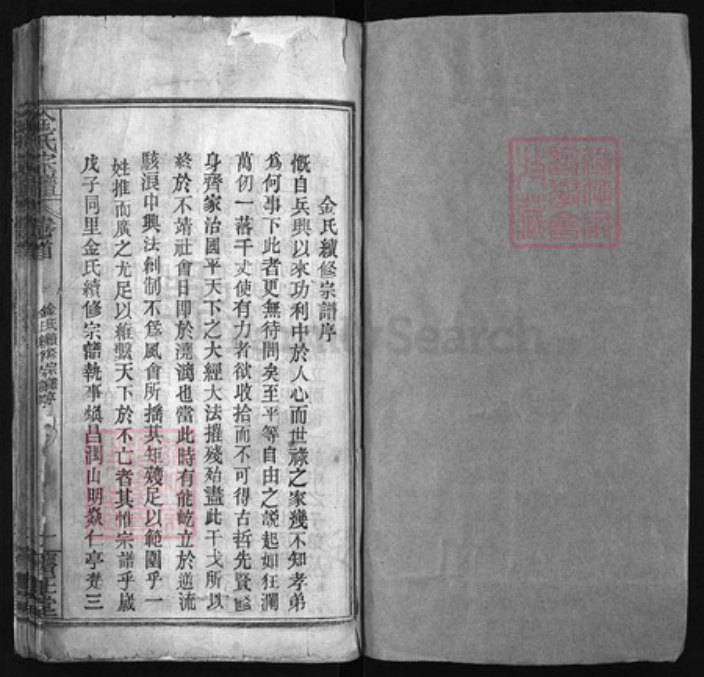 金氏續修宗譜序
慨自兵興以來功利中於人心而世祿之家幾不知孝弟
爲何事下此者更無待問矣至平等自由之說起如狂瀾
萬仞一落千丈使有力者欲收拾而不可得古哲先賢修
身齊家治國平天下之大經大法摧殘殆盡此干戈所以
終於不靖社會日即於澆漓也當此時有能屹立於逆流
駭浪中興法創制不爲風會所播其矩矱足以範圍乎一
姓推而廣之尤足以維繫天下於不亡者其惟宗譜乎歲
戊子同里金氏續修宗譜執事 昌潤山明焱仁亭楚三
金氏宗譜
卷首
金氏續修宗譜序
一
FamilySearch